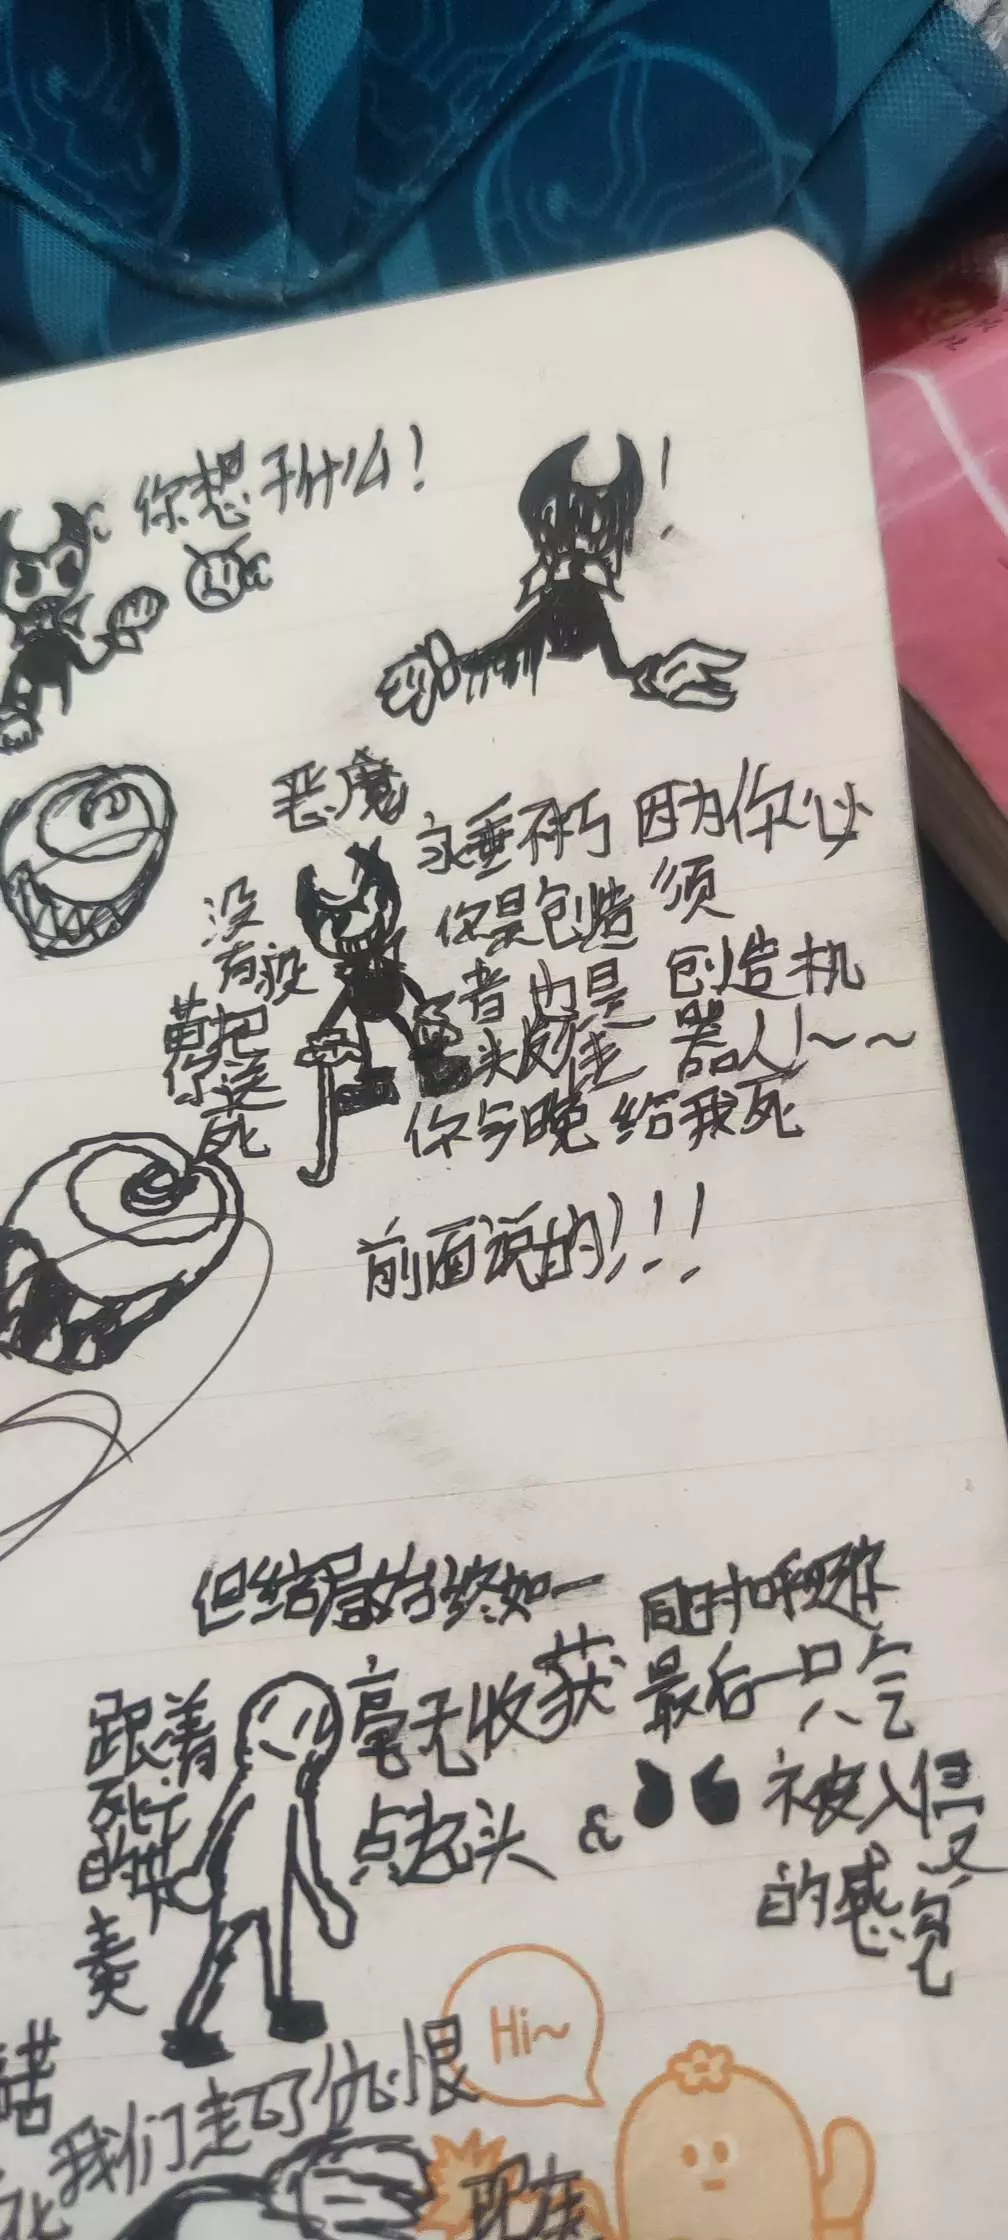 你想干什么!
恶魔
永垂不朽 因为你必须
你是创造者 也是 创造机器人!~~
没有
把你送死
你今晚 给我死
前面说的!!!
但结局始终如一
同时
最后一只
跟着死亡的节奏
毫无收获
点起头
被入侵的感觉
Hi~
我们走 了仇恨
现在